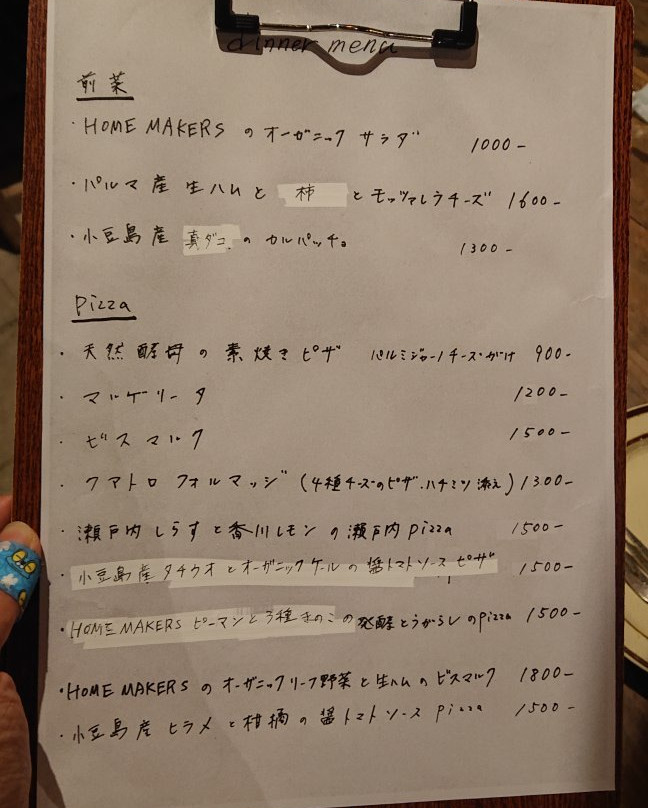 dinner menu
前菜
・HOME MAKERS の オーガニック サラダ 1000-
・パルマ産 生ハムと 柿 と モッツァレラチーズ 1600-
・小豆島産 真ダコ の カルパッチョ 1300-
pizza
・天然酵母の素焼きピザ パルミジャーノチーズがけ 900-
・マルゲリータ 1200-
・ビスマルク 1500-
・クアトロ フォルマッジ (4種チーズのピザ.ハチミツ添え) 1300-
・瀬戸内しらすと香川レモンの瀬戸内pizza 1500-
・小豆島産タチウオとオーガニックケールの醤トマトソースピザ 1500-
・HOME MAKERS ピーマンと3種きのこの発酵とうがらしのpizza 1500-
・HOME MAKERS のオーガニックリーフ野菜と生ハムのビスマルク 1800-
・小豆島産 ヒラメと柑橘の醤トマトソース pizza 1500-